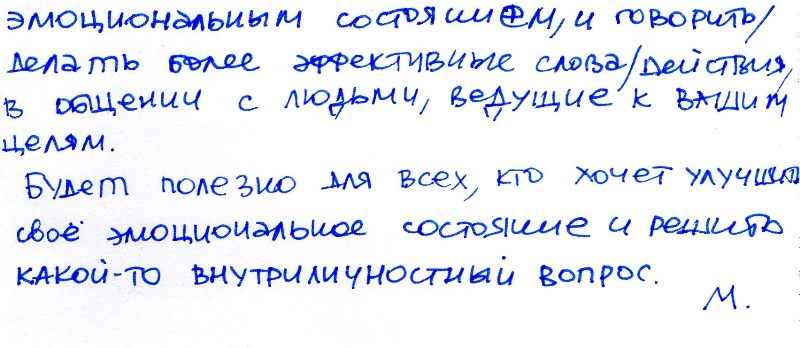 эмоциональным состоянием, и говорить/
делать более эффективные слова/действия,
в общении с людьми, ведущие к вашим
целям.
Будет полезно для всех, кто хочет улучшить
своё эмоциональное состояние и решить
какой-то внутриличностный вопрос.
М.